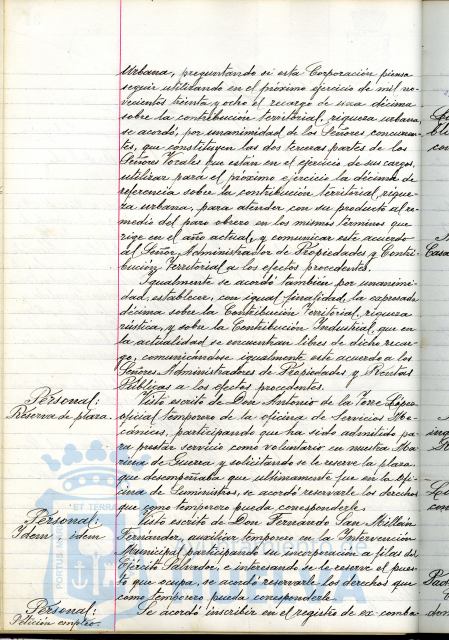 Urbana, preguntando si esta Corporación piensa
seguir utilizando en el próximo ejercicio de mil no-
vecientos treinta y ocho el recargo de una décima
sobre la contribución territorial, riqueza urbana,
se acordó, por unanimidad de los Señores concurren-
tes, que constituyen las dos terceras partes de los
Señores Vocales que están en el ejercicio de sus cargos,
utilizar para el próximo ejercicio la décima de
referencia sobre la contribución territorial rique-
za urbana, para atender con su producto al re-
medio del paro obrero en los mismos términos que
rige en el año actual, y comunicar este acuerdo
al Señor Administrador de Propiedades y Contri-
bución Territorial a los efectos procedentes.
Igualmente se acordó también por unanimi-
dad, establecer, con igual finalidad, la expresada
décima sobre la Contribución Territorial, riqueza
rústica, y sobre la Contribución Industrial, que en
la actualidad se encuentran libres de dicho recar-
go, comunicándose igualmente este acuerdo a los
Señores Administradores de Propiedades y Rentas
Públicas a los efectos procedentes.
Personal:
Reserva de plaza.
Visto escrito de Don Antonio de la Torre López
oficial temporero de la oficina de Servicios Me-
cánicos, participando que ha sido admitido pa-
ra prestar servicio como voluntario en nuestra Ma-
rina de Guerra y solicitando se le reserve la plaza
que desempeñaba que ultimamente fue en la Ofi-
cina de Suministros, se acordó reservarle los derechos
que como temporero pueda corresponderle.
Personal:
Idem idem
Visto escrito de Don Fernando San Millán
Fernández, auxiliar temporero de la Intervención
Municipal participando su incorporación a filas del
Ejército Salvador, e interesando se le reserve el pues-
to que ocupa, se acordó reservarle los derechos que
como temporero pueda corresponderle.
Personal:
Petición empleo.
Se acordó inscribir en el registro de ex-comba-
ET TERRA